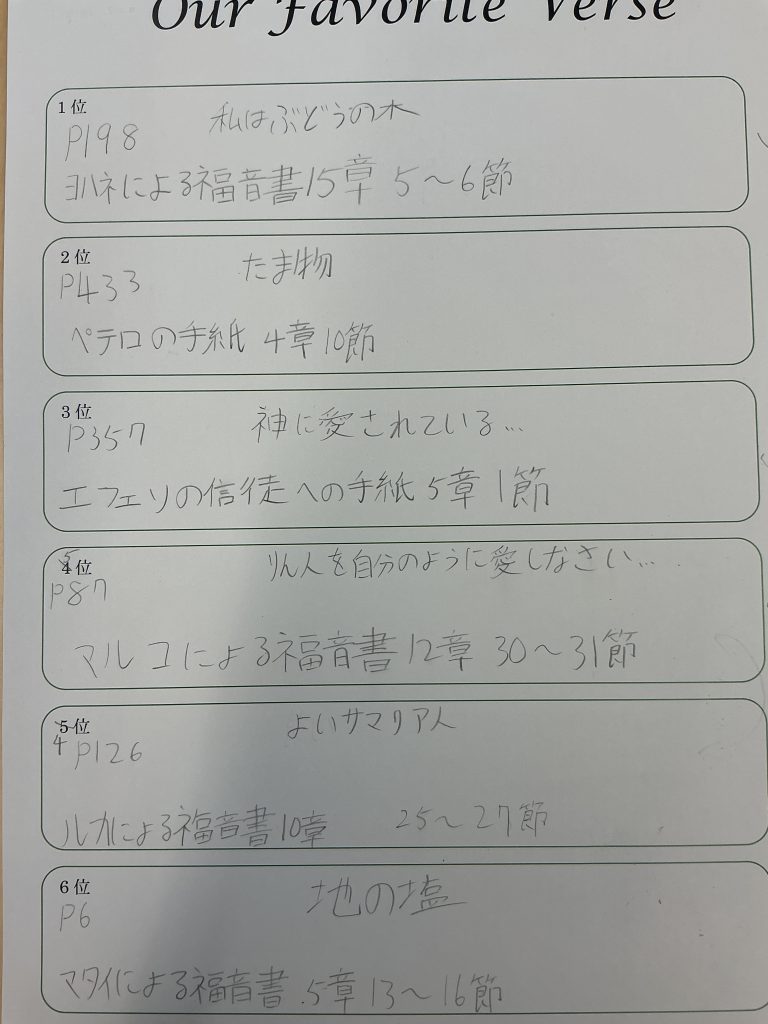 Our Favorite Verse
1位
P198 私はぶどうの木
ヨハネによる福音書15章 5〜6節
2位
P433 たま物
ペテロの手紙 4章10節
3位
P357 神に愛されている…
エフェソの信徒への手紙 5章 1節
4位
5
P87 りん人を自分のように愛しなさい…
マルコによる福音書12章 30〜31節
5位
4 P126 よいサマリア人
ルカによる福音書10章 25〜27節
6位
P6 地の塩
マタイによる福音書 5章 13〜16節